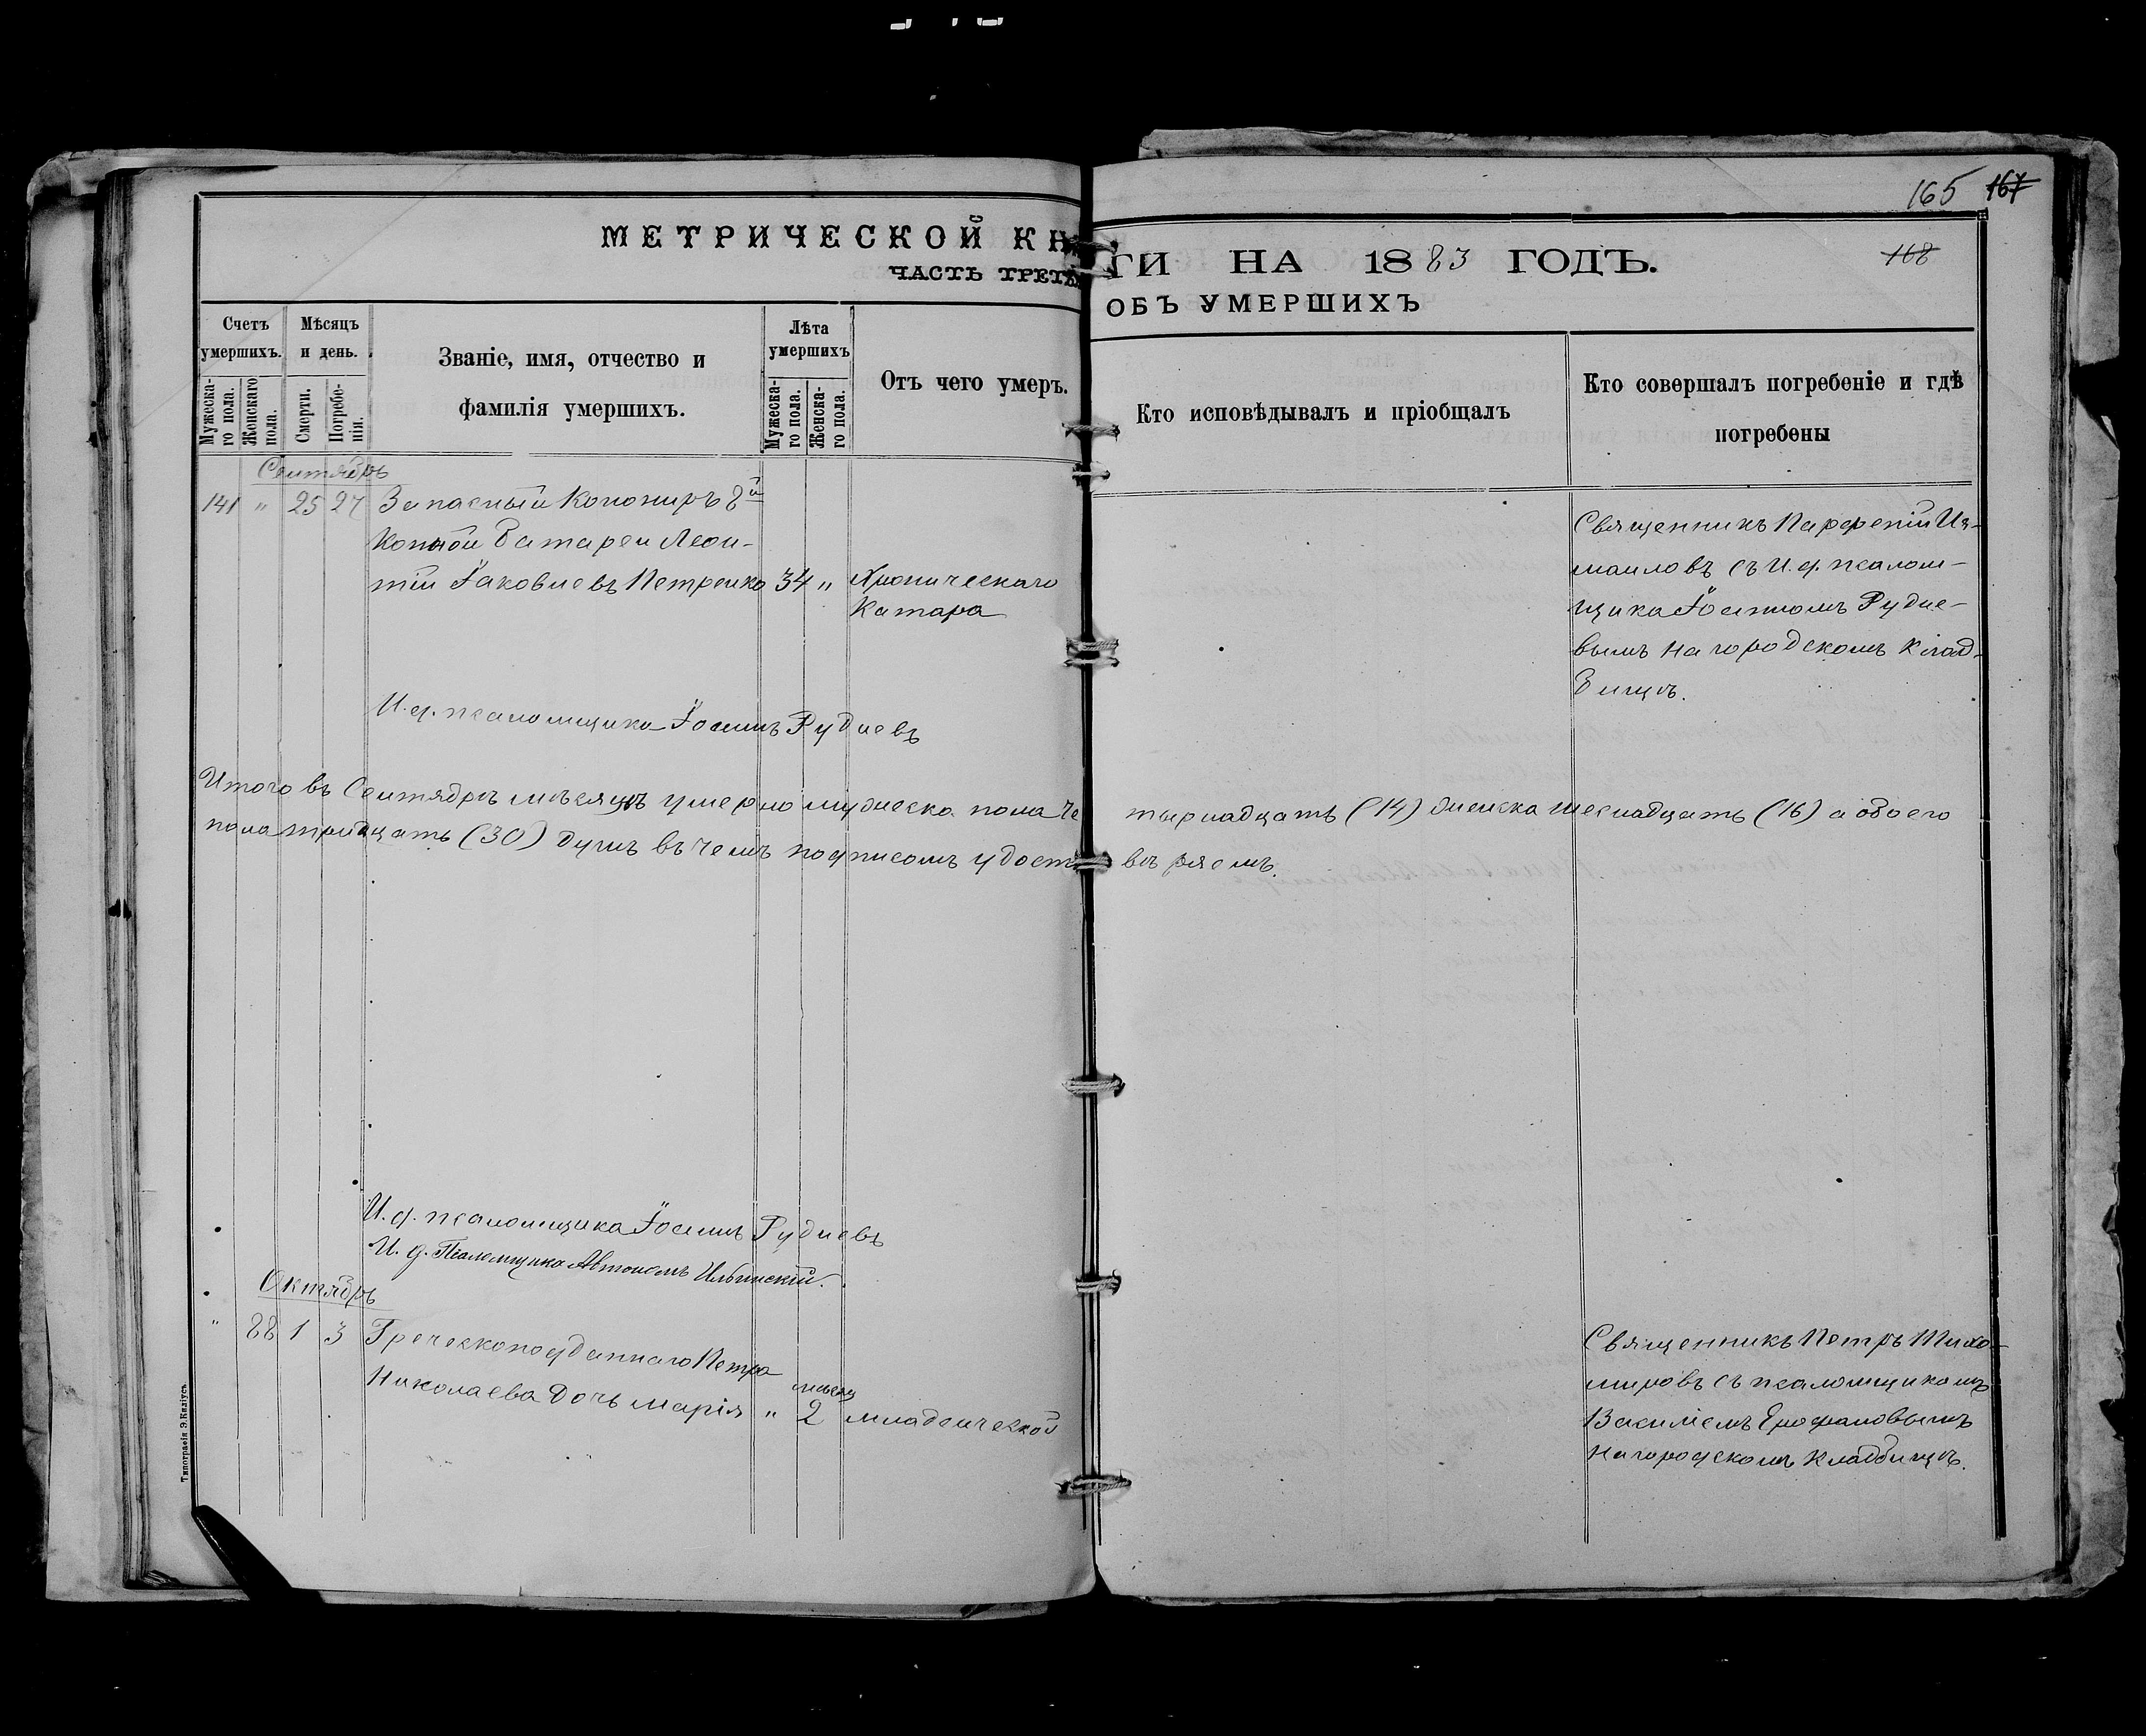 165 167
МЕТРИЧЕСКОЙ КНИГИ НА 1883 ГОДЪ.
168
ЧАСТЬ ТРЕТЬЯ ОБЪ УМЕРШИХЪ
Счетъ умершихъ.
Мужеска-го пола.
Женскаго пола.
Мѣсяцъ и день.
Смерти.
Погребе-нія.
Званіе, имя, отчество и
фамилія умершихъ.
Лѣта умершихъ
Мужеска-го пола.
Женска-го пола.
Отъ чего умеръ.
Кто исповѣдывалъ и пріобщалъ
Кто совершалъ погребеніе и гдѣ
погребены
Сентябрь
141 " 25 27 Запасный Канониръ 8й
Конной Батареи Леон-
тій Іаковлевъ Петренко 34 " Хроническаго
Катара
Священникъ Парфеній Из-
маиловъ съ И. д. псалом-
щика Іосифомъ Рудне-
вымъ на городскомъ клад-
бищѣ.
И. д. псаломщика Іосифъ Рудневъ
Итого въ Сентябрѣ мѣсяцѣ умерло мужеска пола че тырнадцать (14) женска шеснадцать (16) а обоего
пола тридцать (30) душъ въ чемъ подписомъ удосто вѣряемъ.
И. д. псаломщика Іосифъ Рудневъ
И. д. Псаломщика Автономъ Ильинскій.
Октябрь
" 88 1 3 Греческоподданнаго Петра
Николаева дочь Марія " 2 младенческой
мѣсяц
Священникъ Петръ Тихо-
мировъ съ псаломщикомъ
Василіемъ Ерофаловымъ
на городскомъ кладбищѣ.
Типографія Э. Киліусъ